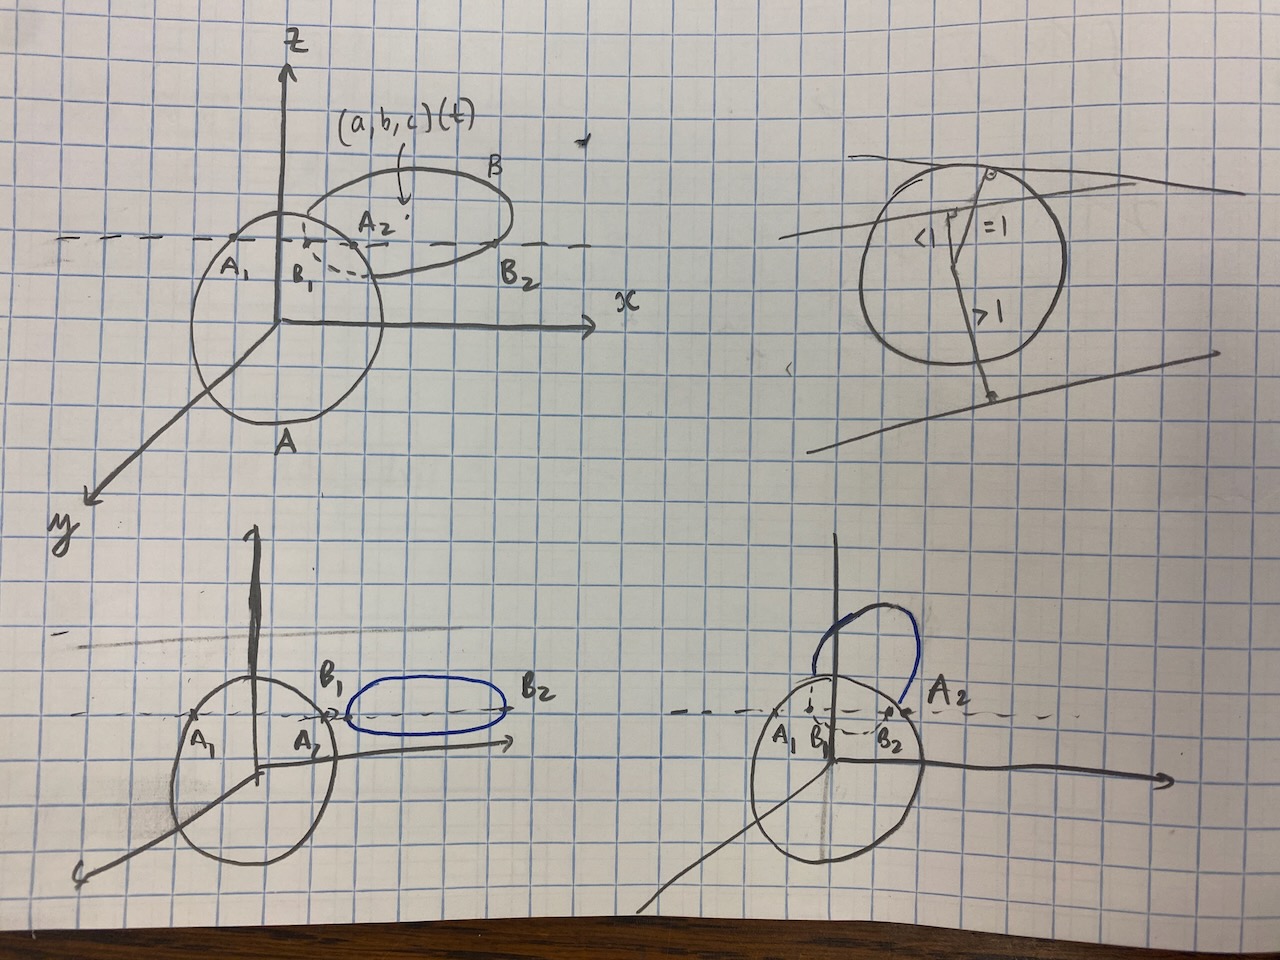 z
(a,b,c)(t)
B
A₂
A₁
B₁
B₂
x
A
y
<1
=1
>1
B₁
B₂
A₁
A₂
A₂
A₁
B₁
B₂